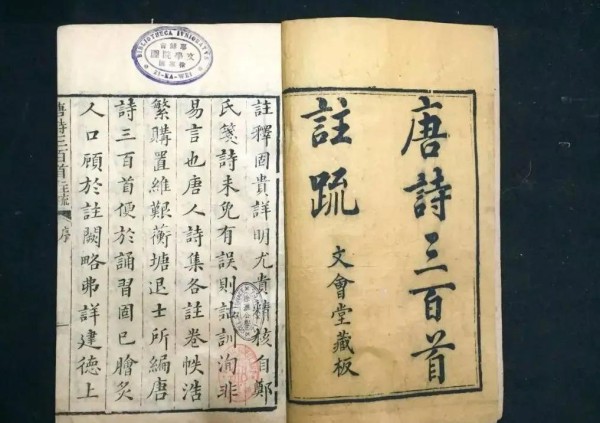 唐詩三百首
註疏
文會堂藏板
註釋固貴詳明尤貴精核自鄭
氏箋詩未免有誤則詁訓洵非
易言也唐人詩集各註卷帙浩
繁購置維艱蘅塘退士所編唐
詩三百首便於誦習固已膾炙
人口顧於註闕略弗詳建德上
唐詩三百首註疏
序
BIBLIOTHECA
ZI-KA-WEI